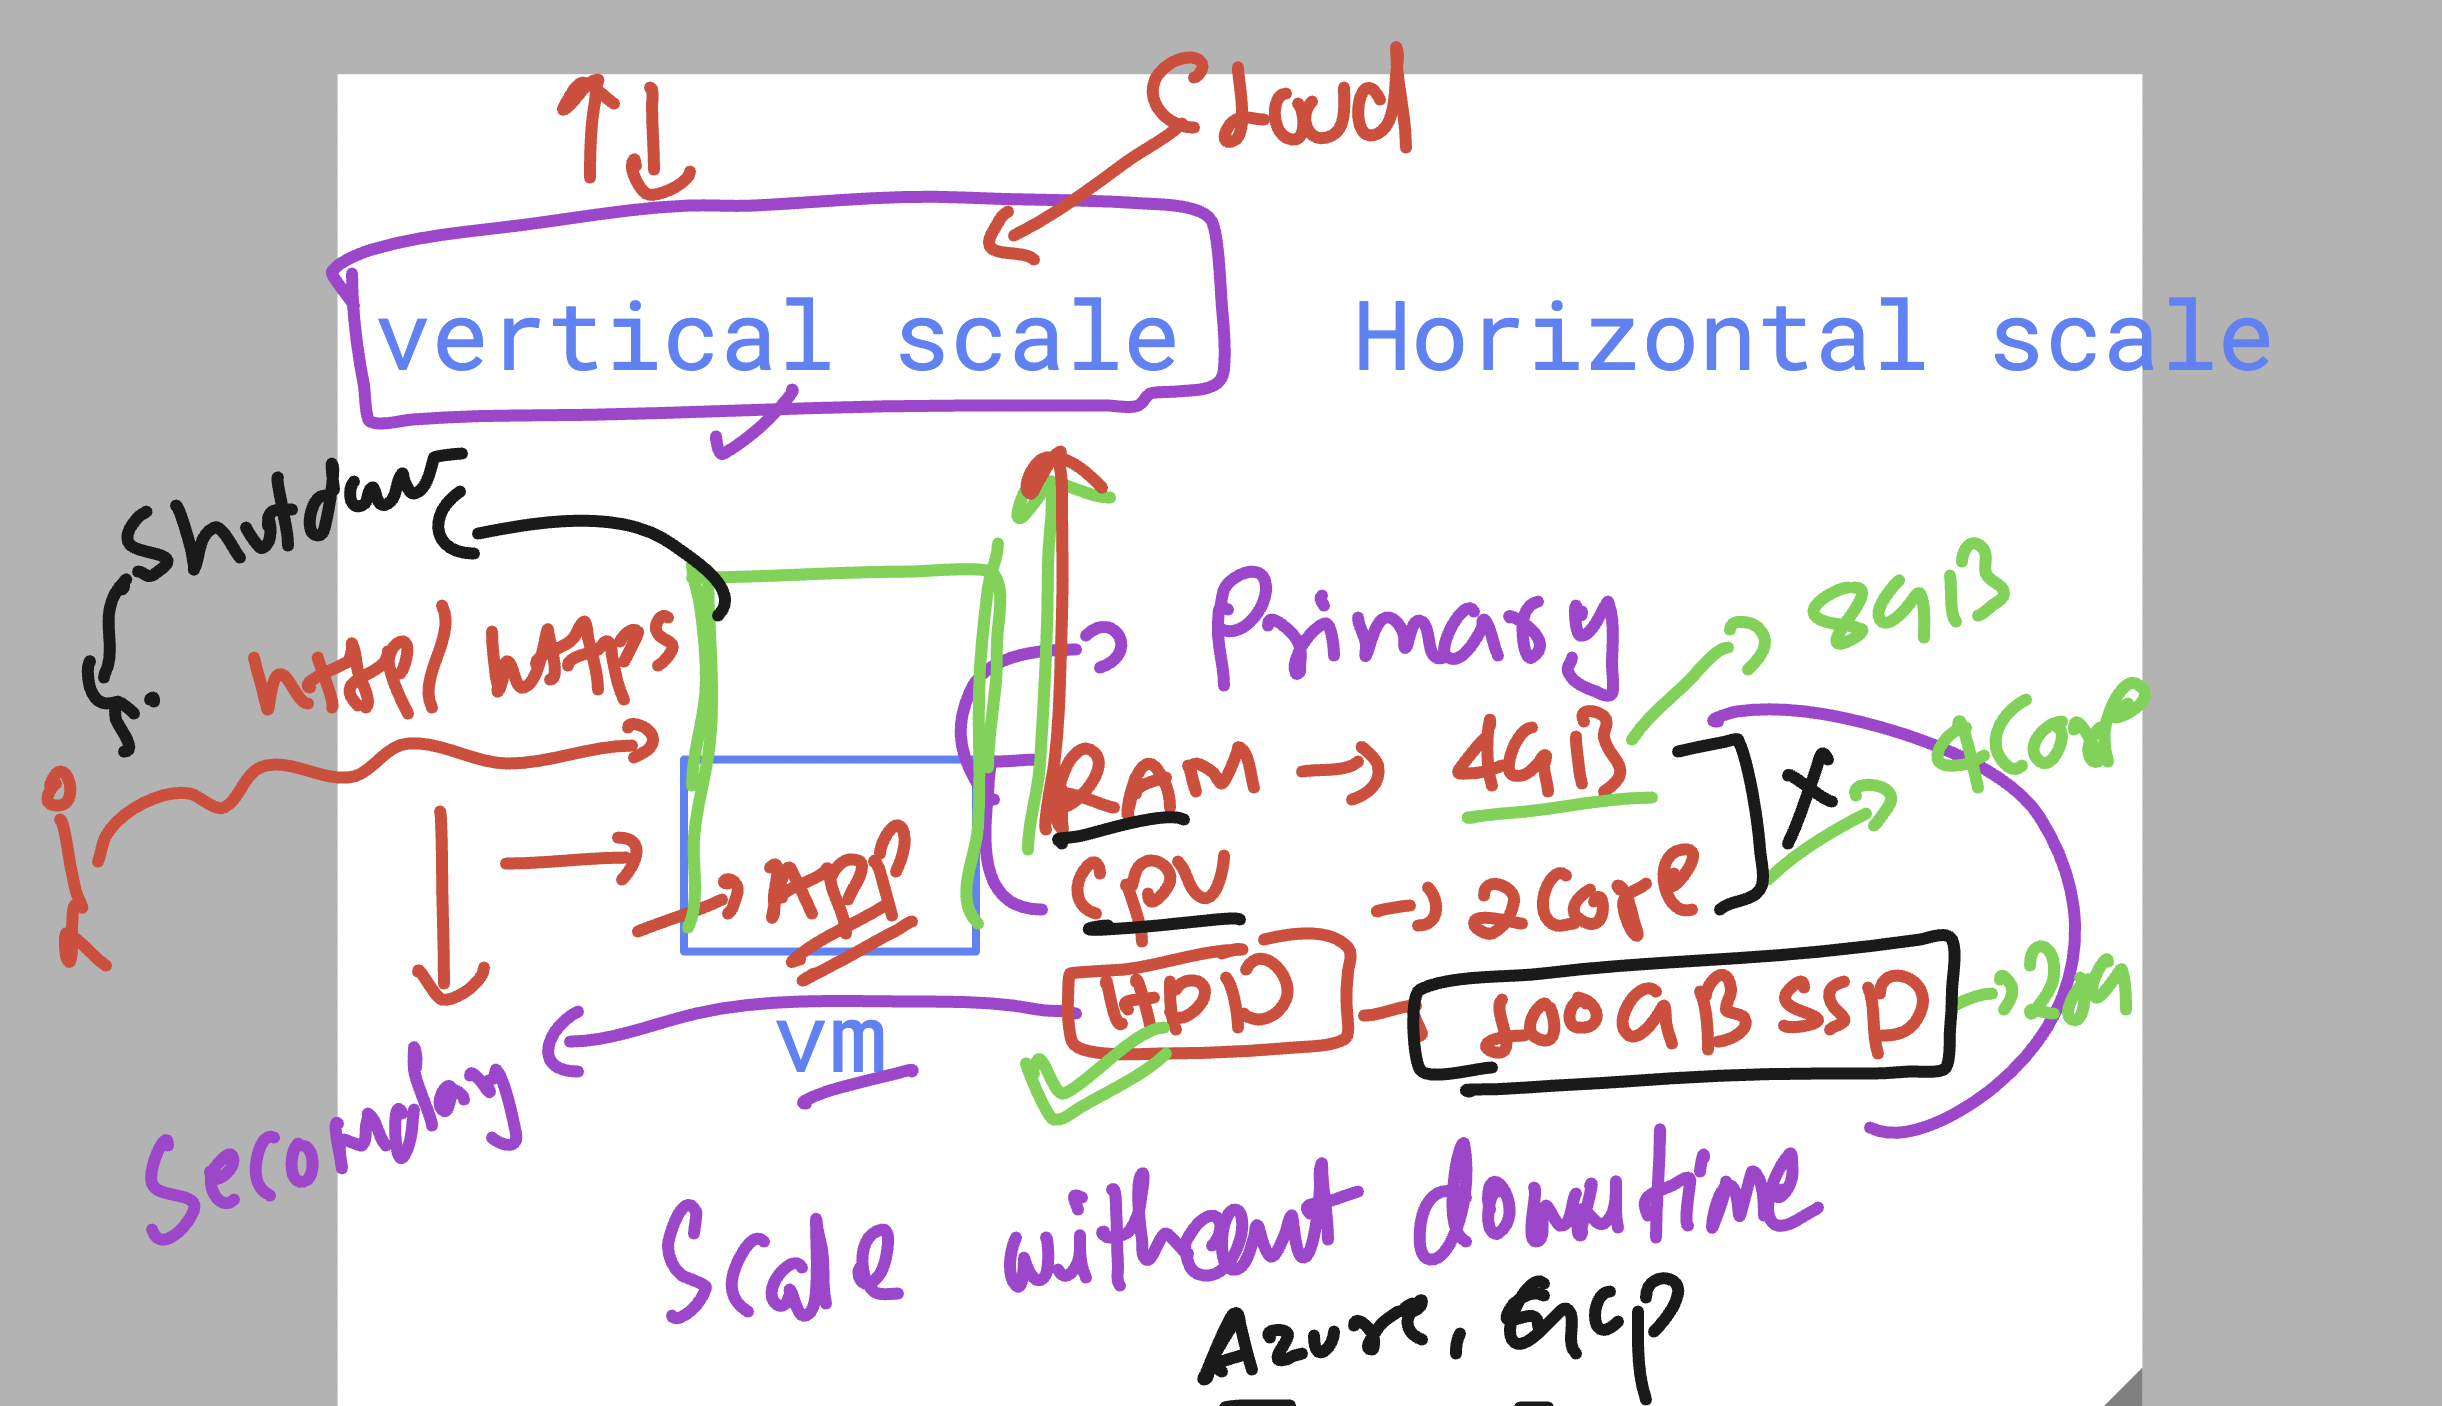 Cloud
vertical scale
Horizontal scale
Shutdown
http/ https
Primary
8GiB
RAM → 4GiB
4 Core
API
CPU → 2 Core
HDD
100GB SSD
vm
Secondary
Scale without downtime
Azure, GCP